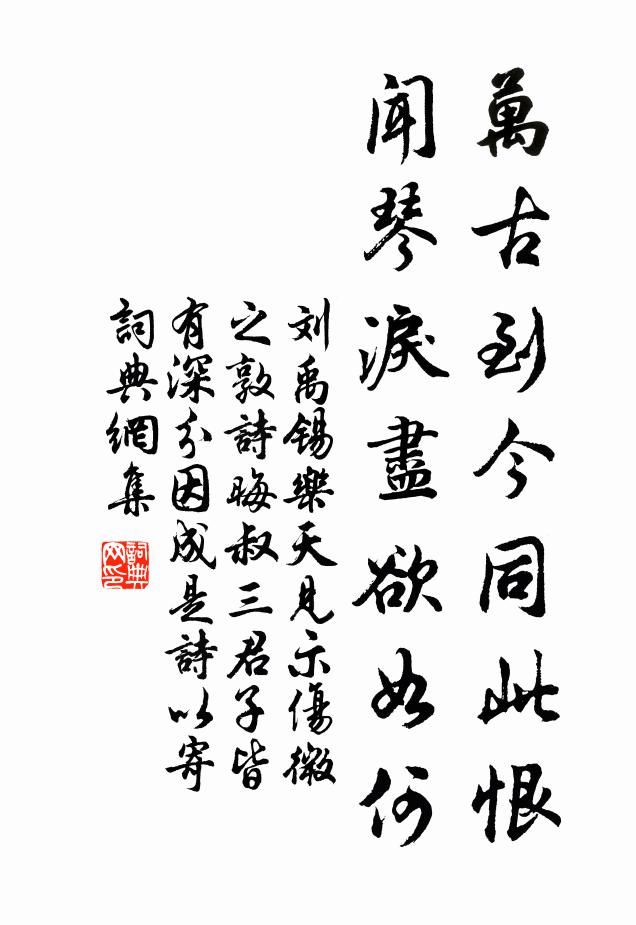 萬古到今同此恨
闻琴淚盡欲如何
刘禹锡樂天見示傷微
之敦詩晦叔三君子皆
有深分因成是詩以寄
詞典網集
詞典
网印